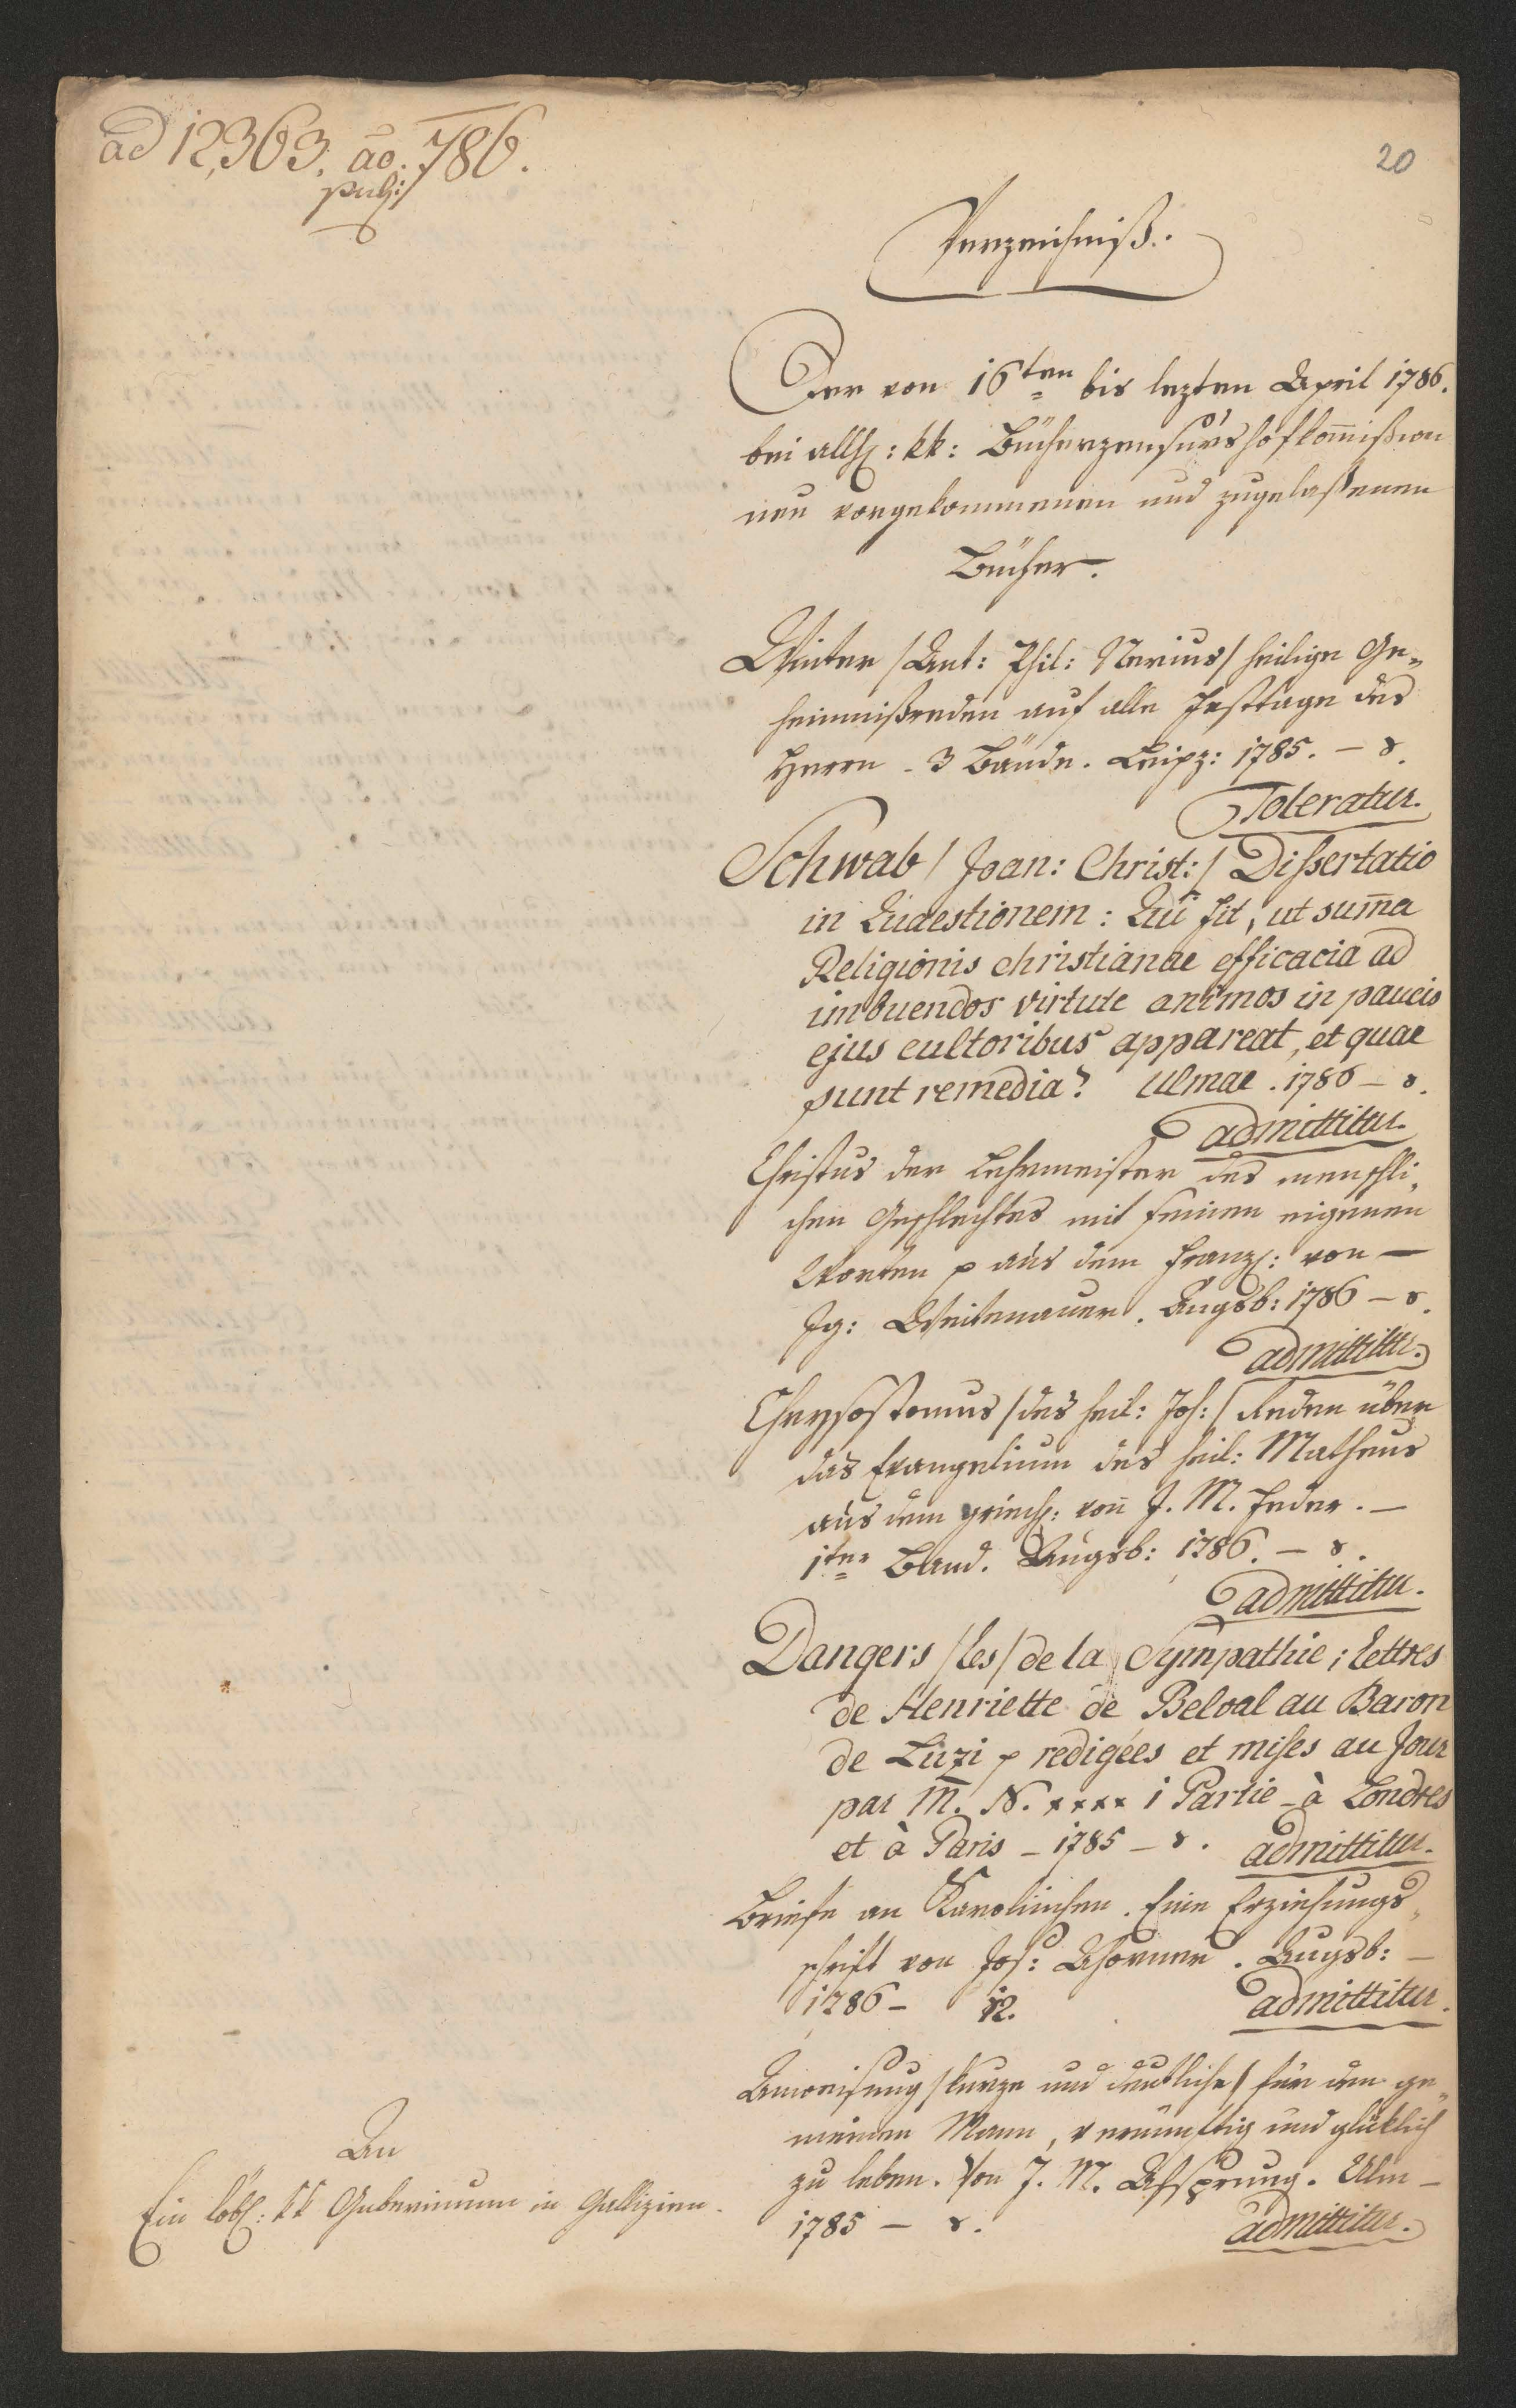 ad 12,363. ao. 786.
20
Verzeichniß.
Der von 16ten bis lezten April 1786.
bei allh: kk: Bücherzensurshofkom̄ißion
neu vorgekommenen und zugelaßenen
Bücher.
Winter /Ant: Phil: Nerius/ heilige Ge„
heimnißreden auf alle Festtage des
Herrn - 3 Bände. Leipz: 1785. – 8.
Toleratur.
Schwab / Joan: Christ: / Dissertatio
in Quaestionem: Qui fit, ut sum̄a
Religionis christianae efficacia ad
imbuendos virtute animos in paucis
ejus cultoribus appareat, et quae
sunt remedia? Ulmae. 1786 – 8.
admittitur.
Christus der Lehrmeister des menschli„
chen Geschlechtes mit seinen eigenen
Worten p aus dem Franz: von –
Ig: Weitenauer. Augsb: 1786 – 8.
admittitur.
Chrysostomus /des heil: Joh:/ Reden über
das Evangelium des heil: Matheus
aus dem griech: von J. M. Feder. –
1ter Band. Augsb: 1786. – 8.
admittitur.
Dangers /les/ de la Sympathie; lettres
de Henriette de Belval au Baron
de Luzi p redigées et mises au Jour
par M. N. xxxx 1 Partie – à Londres
et à Paris – 1785 – 8. admittitur.
Briefe an Karolinchen. Eine Erziehungs„
schrift von Jos: Ahorner. Augsb: –
1786 – 12. admittitur.
Anweisung /kurze und deutliche/ für den ge„
meinen Mann, vernünftig und glüklich
zu leben. Von J. M. Afsprung. Ulm –
1785 – 8. admittitur.
An
Ein löbl: kk Gubernium in Gallizien.